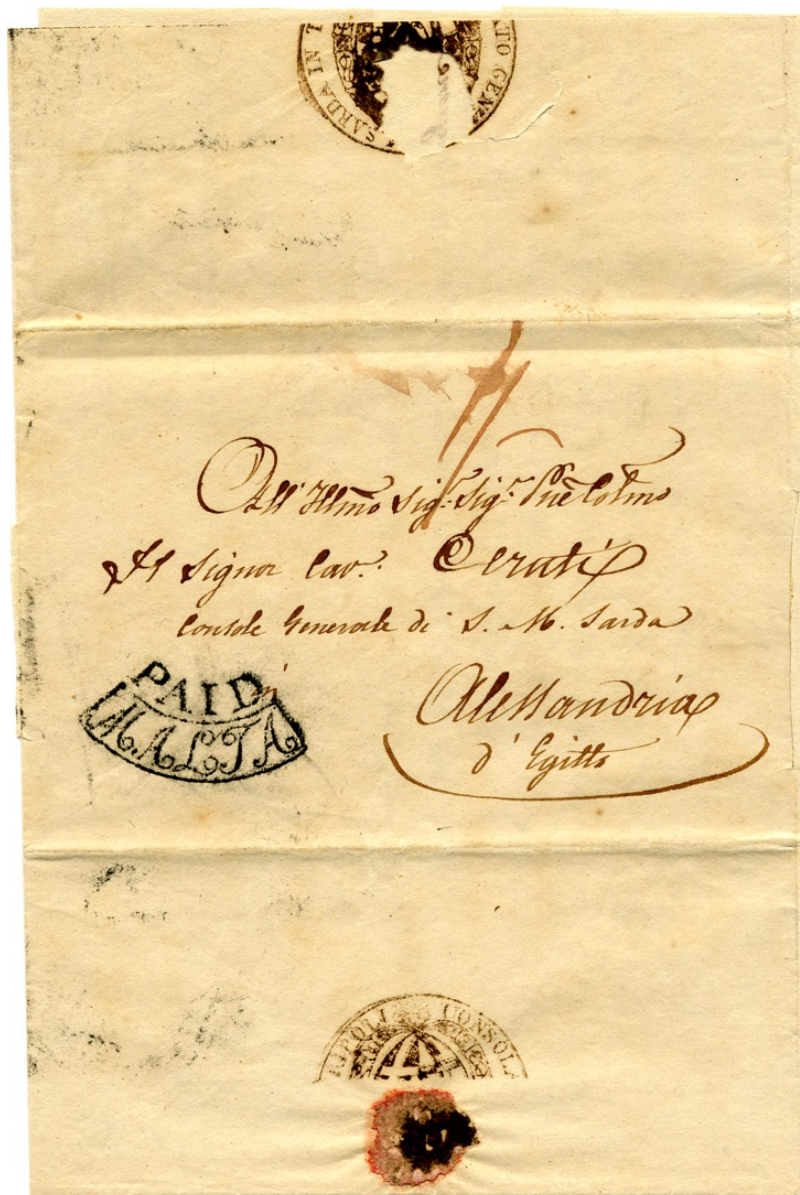 SARDA IN T
ATO GEN
All' Illmo Sigr. Sigr. Pne Colmo
Il Signor Cav. Ceruti
Console Generale di S. M. Sarda
in
PAID
MALTA
Alessandria
d' Egitto
RIPOLI CONSOLA